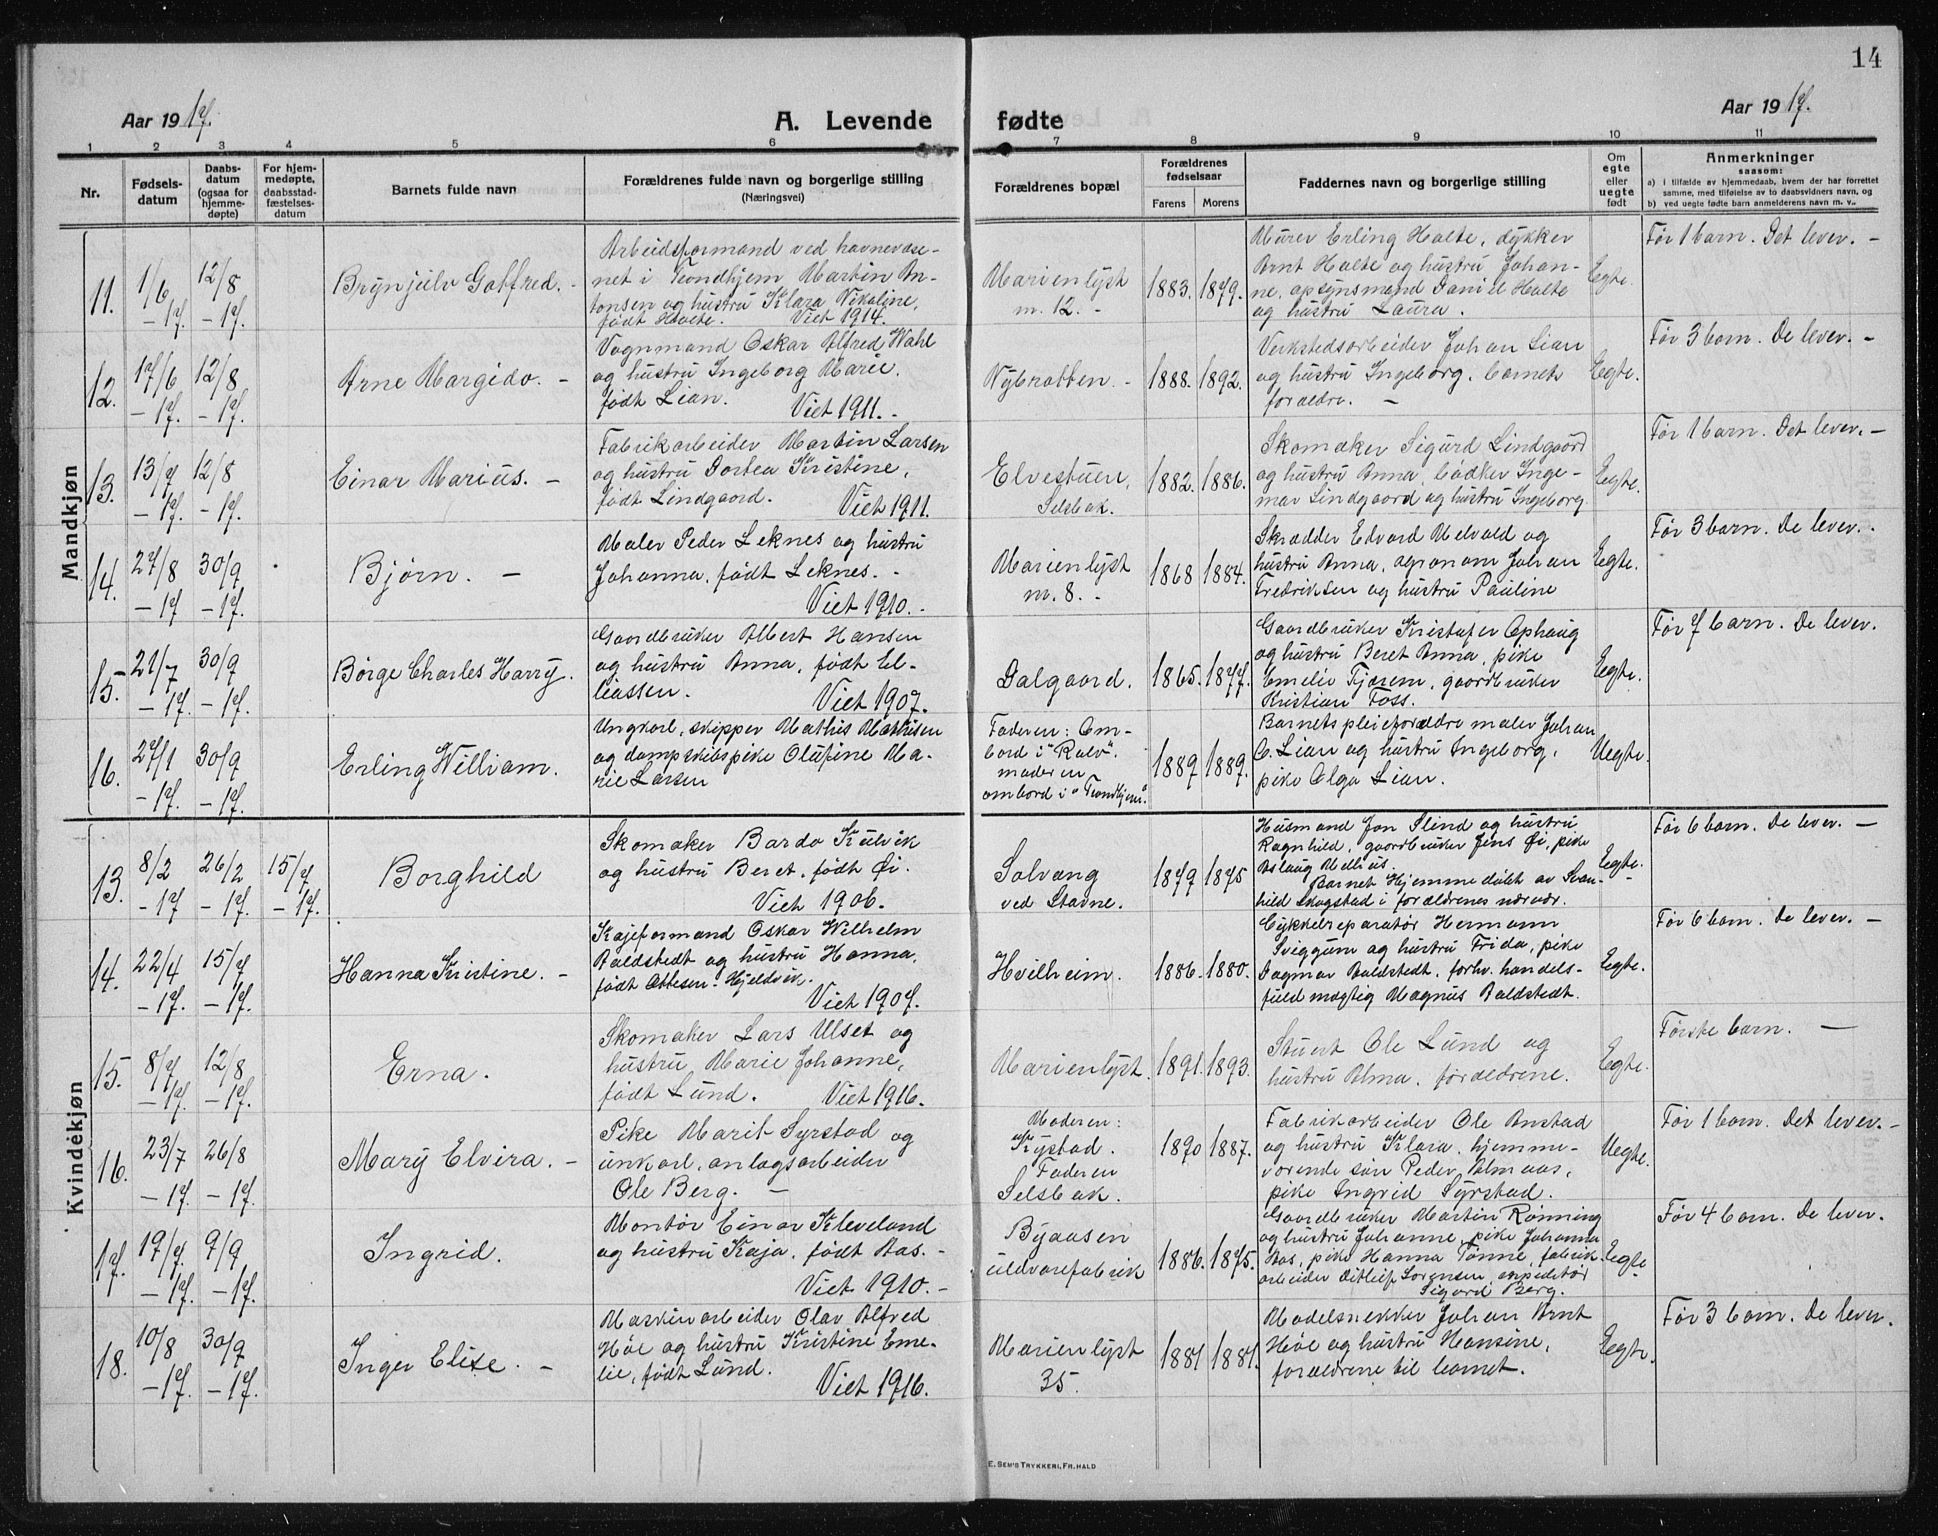 14
Aar 1917.
A. Levende fødte
Aar 1917.
1 2 3 4 5 6 7 8 9 10 11
Nr.
Fødsels-
datum
Daabs-
datum
(ogsaa for
hjemme-
døpte)
For hjem-
medøpte,
daabsstad-
fæstelses-
datum
Barnets fulde navn
Forældrenes fulde navn og borgerlige stilling
(Næringsvei)
Forældrenes bopæl
Forældrenes
fødselsaar
Farens Morens
Faddernes navn og borgerlige stilling
Om
egte
eller
uegte
født
Anmerkninger
saasom:
a) i tilfælde av hjemmedaab, hvem der har forrettet
samme, med tilføielse av to daabsvidners navn, og
b) ved uegte fødte barn anmelderens navn m. v..
Mandkjøn
11. 1/6 -17. 12/8 -17.
Brynjulv Gotfred. -
Arbeidsformand ved havnevæse-
net i Trondhjem Martin An-
tonsen og hustru Klara Nikoline,
født Holte. Viet 1914.
Marienlyst
m. 12. -
1883. 1879.
Murer Erling Holte, dykker
Arnt Holte og hustru Johan-
ne, opsynsmand Daniel Holte
og hustru Laura.
Egte.
Før 1 barn. Det lever. -
12. 17/6 -17. 12/8 -17.
Arne Margido. -
Vognmand Oskar Alfred Wahl
og hustru Ingeborg Marie.
født Lian. Viet 1911. -
Nybrotten. -
1888. 1892.
Verkstedsarbeider Johan Lian
og hustru Ingeborg. barnets
forældre. -
Egte.
Før 3 barn. De lever. -
13. 13/7 -17. 12/8 -17.
Einar Marius. -
Fabrikarbeider Martin Larsen
og hustru Dortea Kristine,
født Lindgaard. Viet 1911.
Elvestuen,
Selsbak.
1882. 1886.
Skomaker Sigurd Lindgaard
og hustru Anna, bødker Inge-
mar Lindgaard og hustru Ingeborg.
Egte.
Før 1 barn. Det lever. -
14. 27/8 -17. 30/9 -17.
Bjørn. -
Maler Peder Leknes og hustru
Johanna, født Leknes. -
Viet 1910. -
Marienlyst
m. 8. -
1868 1884.
Skrædder Edvard Melvold og
hustru Anna, agronom Johan
Fredriksen og hustru Pauline
Egte.
Før 3 barn. De lever. -
15. 21/7 -17. 30/9 -17.
Børge Charles Harry.
Gaardbruker Albert Hansen
og hustru Anna, født El-
iassen. Viet 1907.
Dalgaard.
1865. 1877.
Gaardbruker Kristofer Ophaug
og hustru Beret Anna, pike
Emelie Tjærem, gaardbruker
Kristian Foss.
Egte.
Før 7 barn. De lever.
16. 27/1 -17. 30/9 -17.
Erling William.
Ungkarl, skipper Mathis Mathisen
og dampskibspike Olufine Ma-
rie Larsen
Faderen: Om-
bord i "Ralv".
moderen
ombord i "Trondhjem".
1889 1889.
Barnets pleieforældre maler Johan
C. Lian og hustru Ingeborg,
pike Olga Lian.
Uegte.
Kvindekjøn
13. 8/2 -17 26/2 -17. 15/7 -17.
Borghild
Skomaker Bardo Kulvik
og hustru Beret, født Øi.
Viet 1906.
Solvang
ved Stavne.
1879 1875
Husmand Jon Slind og hustru
Ragnhild, gaardbruker Jens Øi, pike
Aslaug Melhus.
Barnet Hjemmedøbt av Svan-
hild Skogstad i forældrenes nærvær.
Egte.
Før 6 barn. De lever. -
14. 22/4 -17. 15/7 -17.
Hanna Kristine. -
Kajeformand Oskar Wilhelm
Boldstedt og hustru Hanna,
født Ottesen-Hjeldvik.
Viet 1907.
Hvilheim.
1886. 1880.
Cykkelreparatør Hermann
Sviggum og hustru Frida, pike
Dagmar Boldstedt, forhv. handels-
fuldmægtig Magnus Boldstedt.
Egte.
Før 6 barn. De lever. -
15. 8/7 -17. 12/8 -17.
Erna.
Skomaker Lars Ulset og
hustru Marie Johanne,
født Lund. Viet 1916.
Marienlyst.
1891. 1893.
Stuert Ole Lund og
hustru Alma, forældrene.
Egte.
Første barn. -
16. 23/7 -17. 26/8 -17.
Mary Elvira. -
Pike Marit Syrstad og
unkarl, anlagsarbeider
Ole Berg. -
Moderen:
Kystad.
Faderen
Selsbak.
1890 1887.
Fabrikarbeider Ole Anstad
og hustru Klara, hjemme-
værende søn Peder Almaas,
pike Ingrid Syrstad.
Uegte.
Før 1 barn. Det lever. -
17. 19/7 -17. 9/9 -17.
Ingrid.
Montør Einar Kleveland
og hustru Kaja, født Aas. -
Viet 1910. -
Byaasen
uldvarefabrik
1886. 1875.
Gaardbruker Martin Rønning
og hustru Johanne, pike Johanna
Aas, pike Hanna Tønne, fabrik-
arbeider Ditleif Sørensen, expeditør
Sigurd Berg.
Egte.
Før 4 barn. De lever.
18. 10/8 -17. 30/9 -17.
Inger Elise. -
Maskinarbeider Olav Alfred
Høe og hustru Kristine Eme-
lie, født Lund. Viet 1916.
Marienlyst
35.
1881 1881.
Modelsnekker Johan Arnt
Høe og hustru Hansine,
forældrene til barnet.
Egte.
Før 3 barn. De lever.
E. SEM'S TRYKKERI, FR.HALD